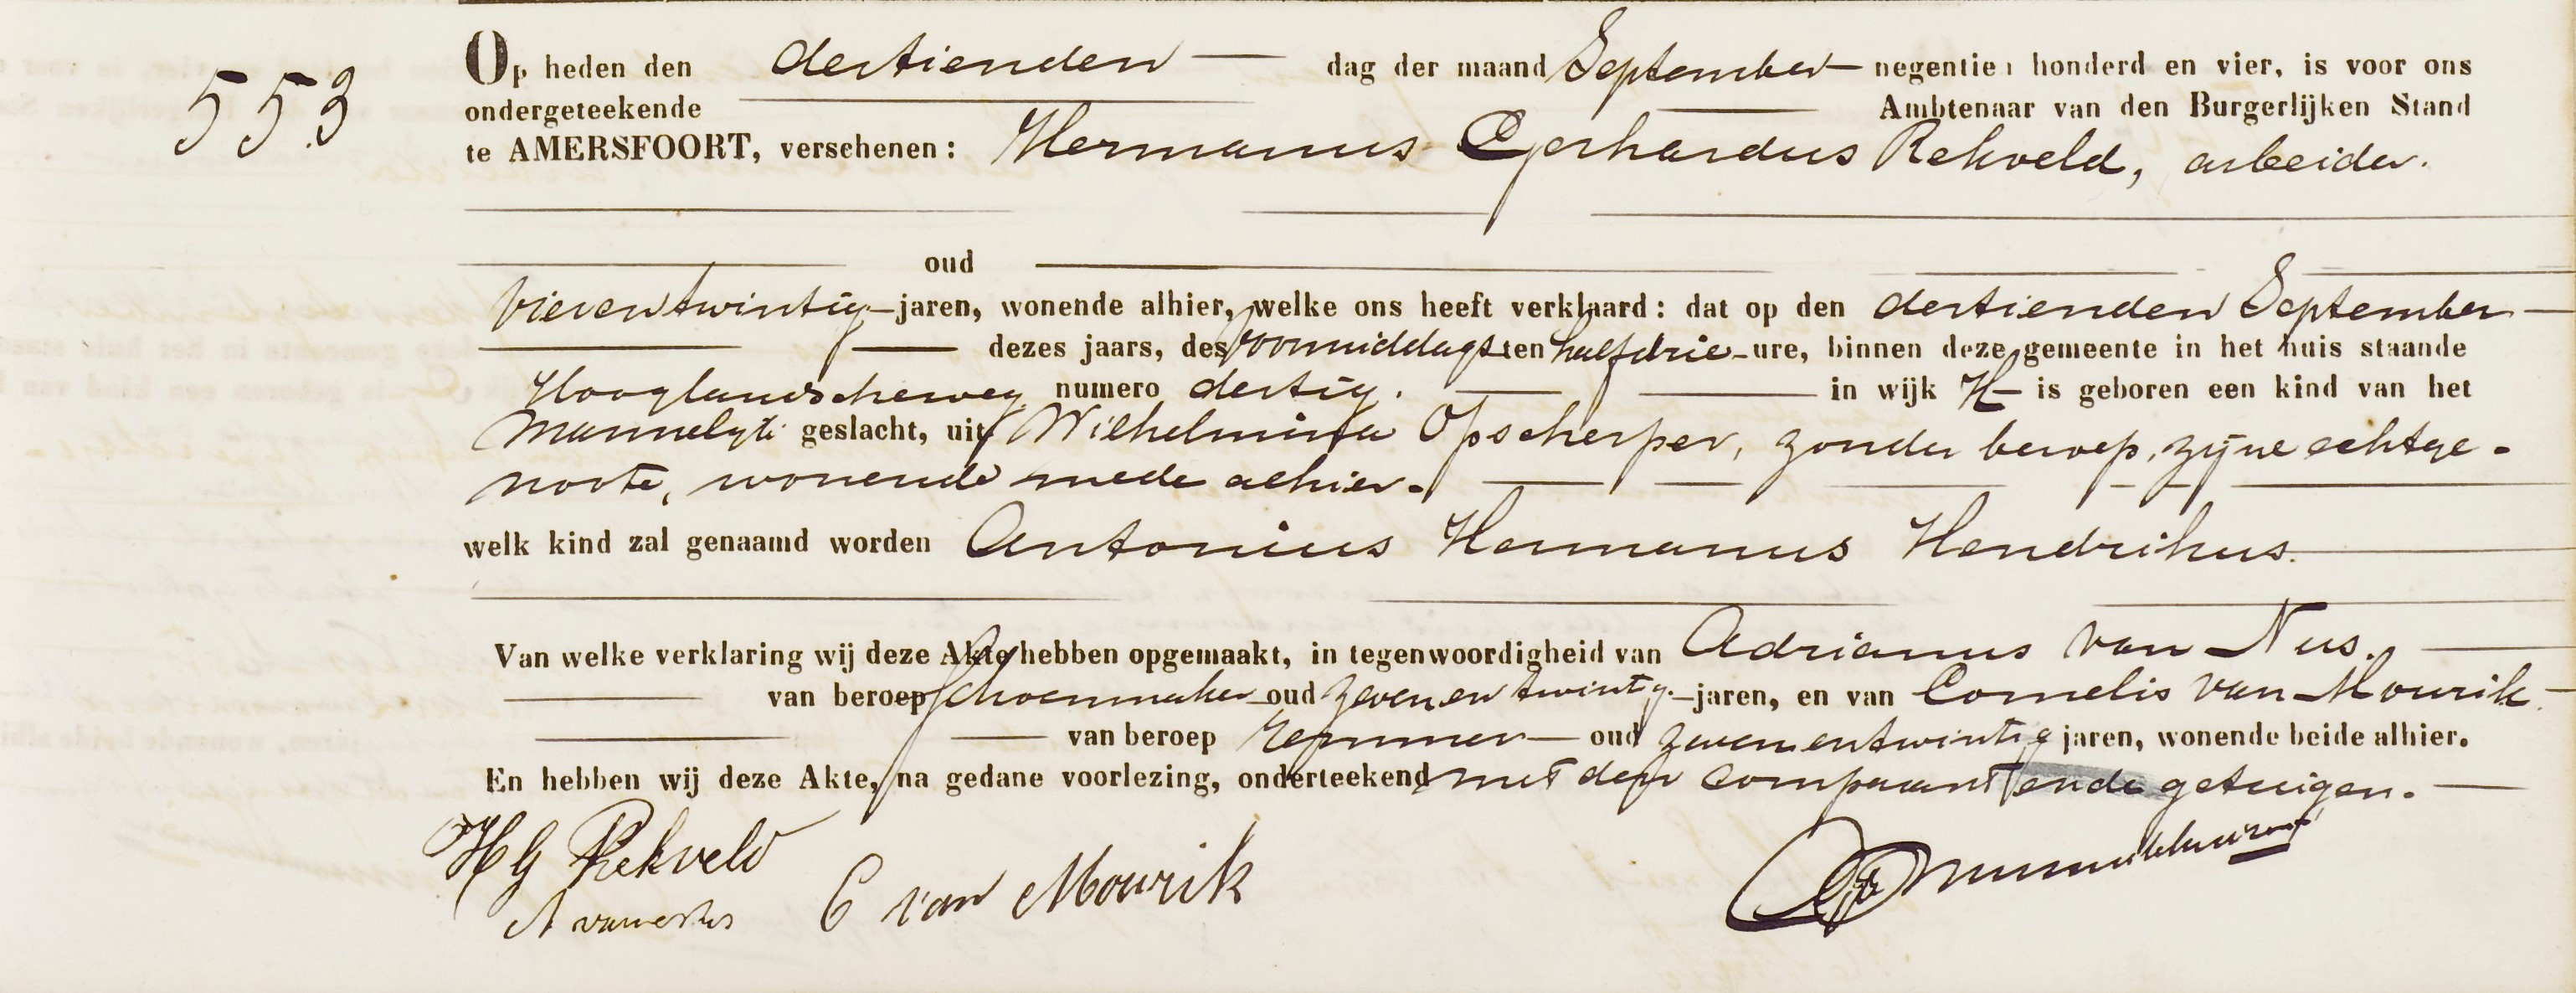 553
Op heden den dertienden dag der maand September negentien honderd en vier, is voor ons
ondergeteekende Ambtenaar van den Burgerlijken Stand
te AMERSFOORT, verschenen: Hermanus Gerhardus Rekveld, arbeider.
oud
vierentwintig jaren, wonende alhier, welke ons heeft verklaard: dat op den dertienden September
dezes jaars, des voormiddags ten half drie ure, binnen deze gemeente in het huis staande
Hooglandscheweg numero dertig. in wijk H is geboren een kind van het
Mannelijk geslacht, uit Wilhelmina Opscherper, zonder beroep, zijne echtge-
noote, wonende mede alhier.
welk kind zal genaamd worden Antonius Hermanus Hendrikus.
Van welke verklaring wij deze Akte hebben opgemaakt, in tegenwoordigheid van Adrianus van Nus.
van beroep schoenmaker oud zevenentwintig jaren, en van Cornelis van Mourik
van beroep oud zevenentwintig jaren, wonende beide alhier.
En hebben wij deze Akte, na gedane voorlezing, onderteekend met den comparant en de getuigen.
HG Rekveld
A van
C van Mourik